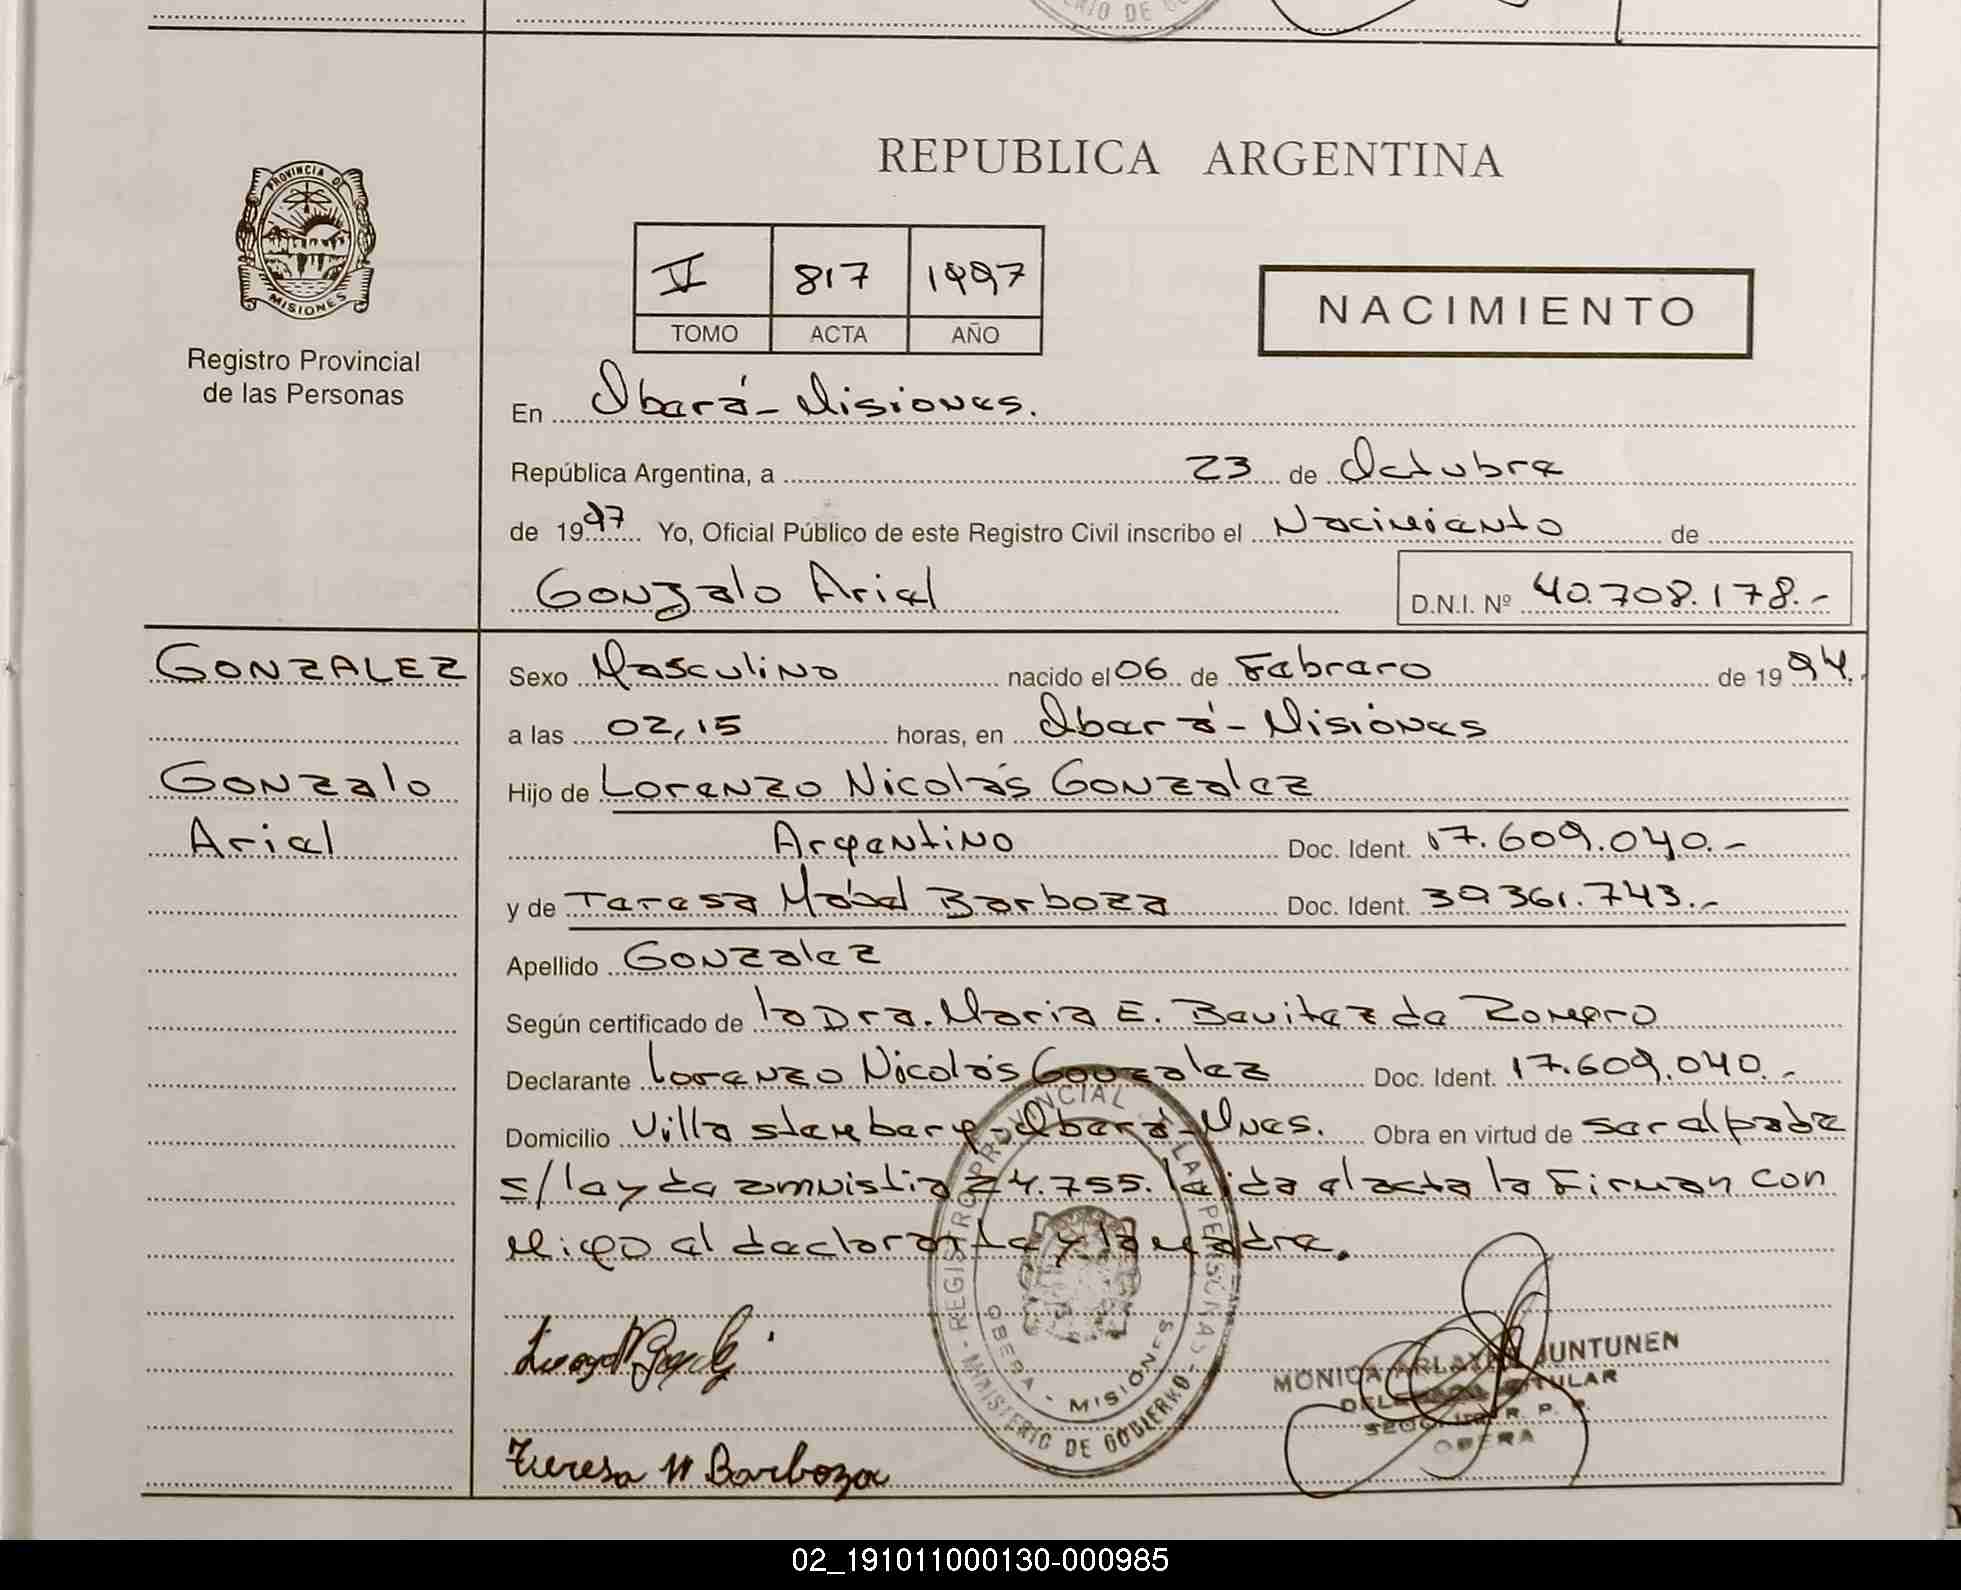 RIO DE GO
PROVINCIA D
MISIONES
Registro Provincial
de las Personas
REPUBLICA ARGENTINA
V 817 1997
TOMO ACTA AÑO
NACIMIENTO
En Oberá - Misiones.
República Argentina, a 23 de Octubre
de 1997 Yo, Oficial Público de este Registro Civil inscribo el Nacimiento de
Gonzalo Ariel D.N.I. Nº 40.708.178.-
GONZALEZ
Gonzalo
Ariel
Sexo Masculino nacido el 06 de Febrero de 1994.
a las 02,15 horas, en Oberá - Misiones
Hijo de Lorenzo Nicolás Gonzalez
Argentino Doc. Ident. 17.609.040.-
y de Teresa Mabel Barboza Doc. Ident. 30 361.743.-
Apellido Gonzalez
Según certificado de la Dra. Maria E. Benitez de Romero
Declarante Lorenzo Nicolás Gonzalez Doc. Ident. 17.609.040.-
Domicilio Villa Stemberg - Oberá - Mnes. Obra en virtud de ser el padre
s/ ley de amnistia 24.755. leida el acta la Firman con
migo el declarante y la madre.
REGISTRO PROVINCIAL LAS PERSONAS
MINISTERIO DE GOBIERNO
OBERA - MISIONES
MONICA ARLAYNE JUNTUNEN
TITULAR
R. P. P.
OBERA
Teresa M Barboza
02_191011000130-000985